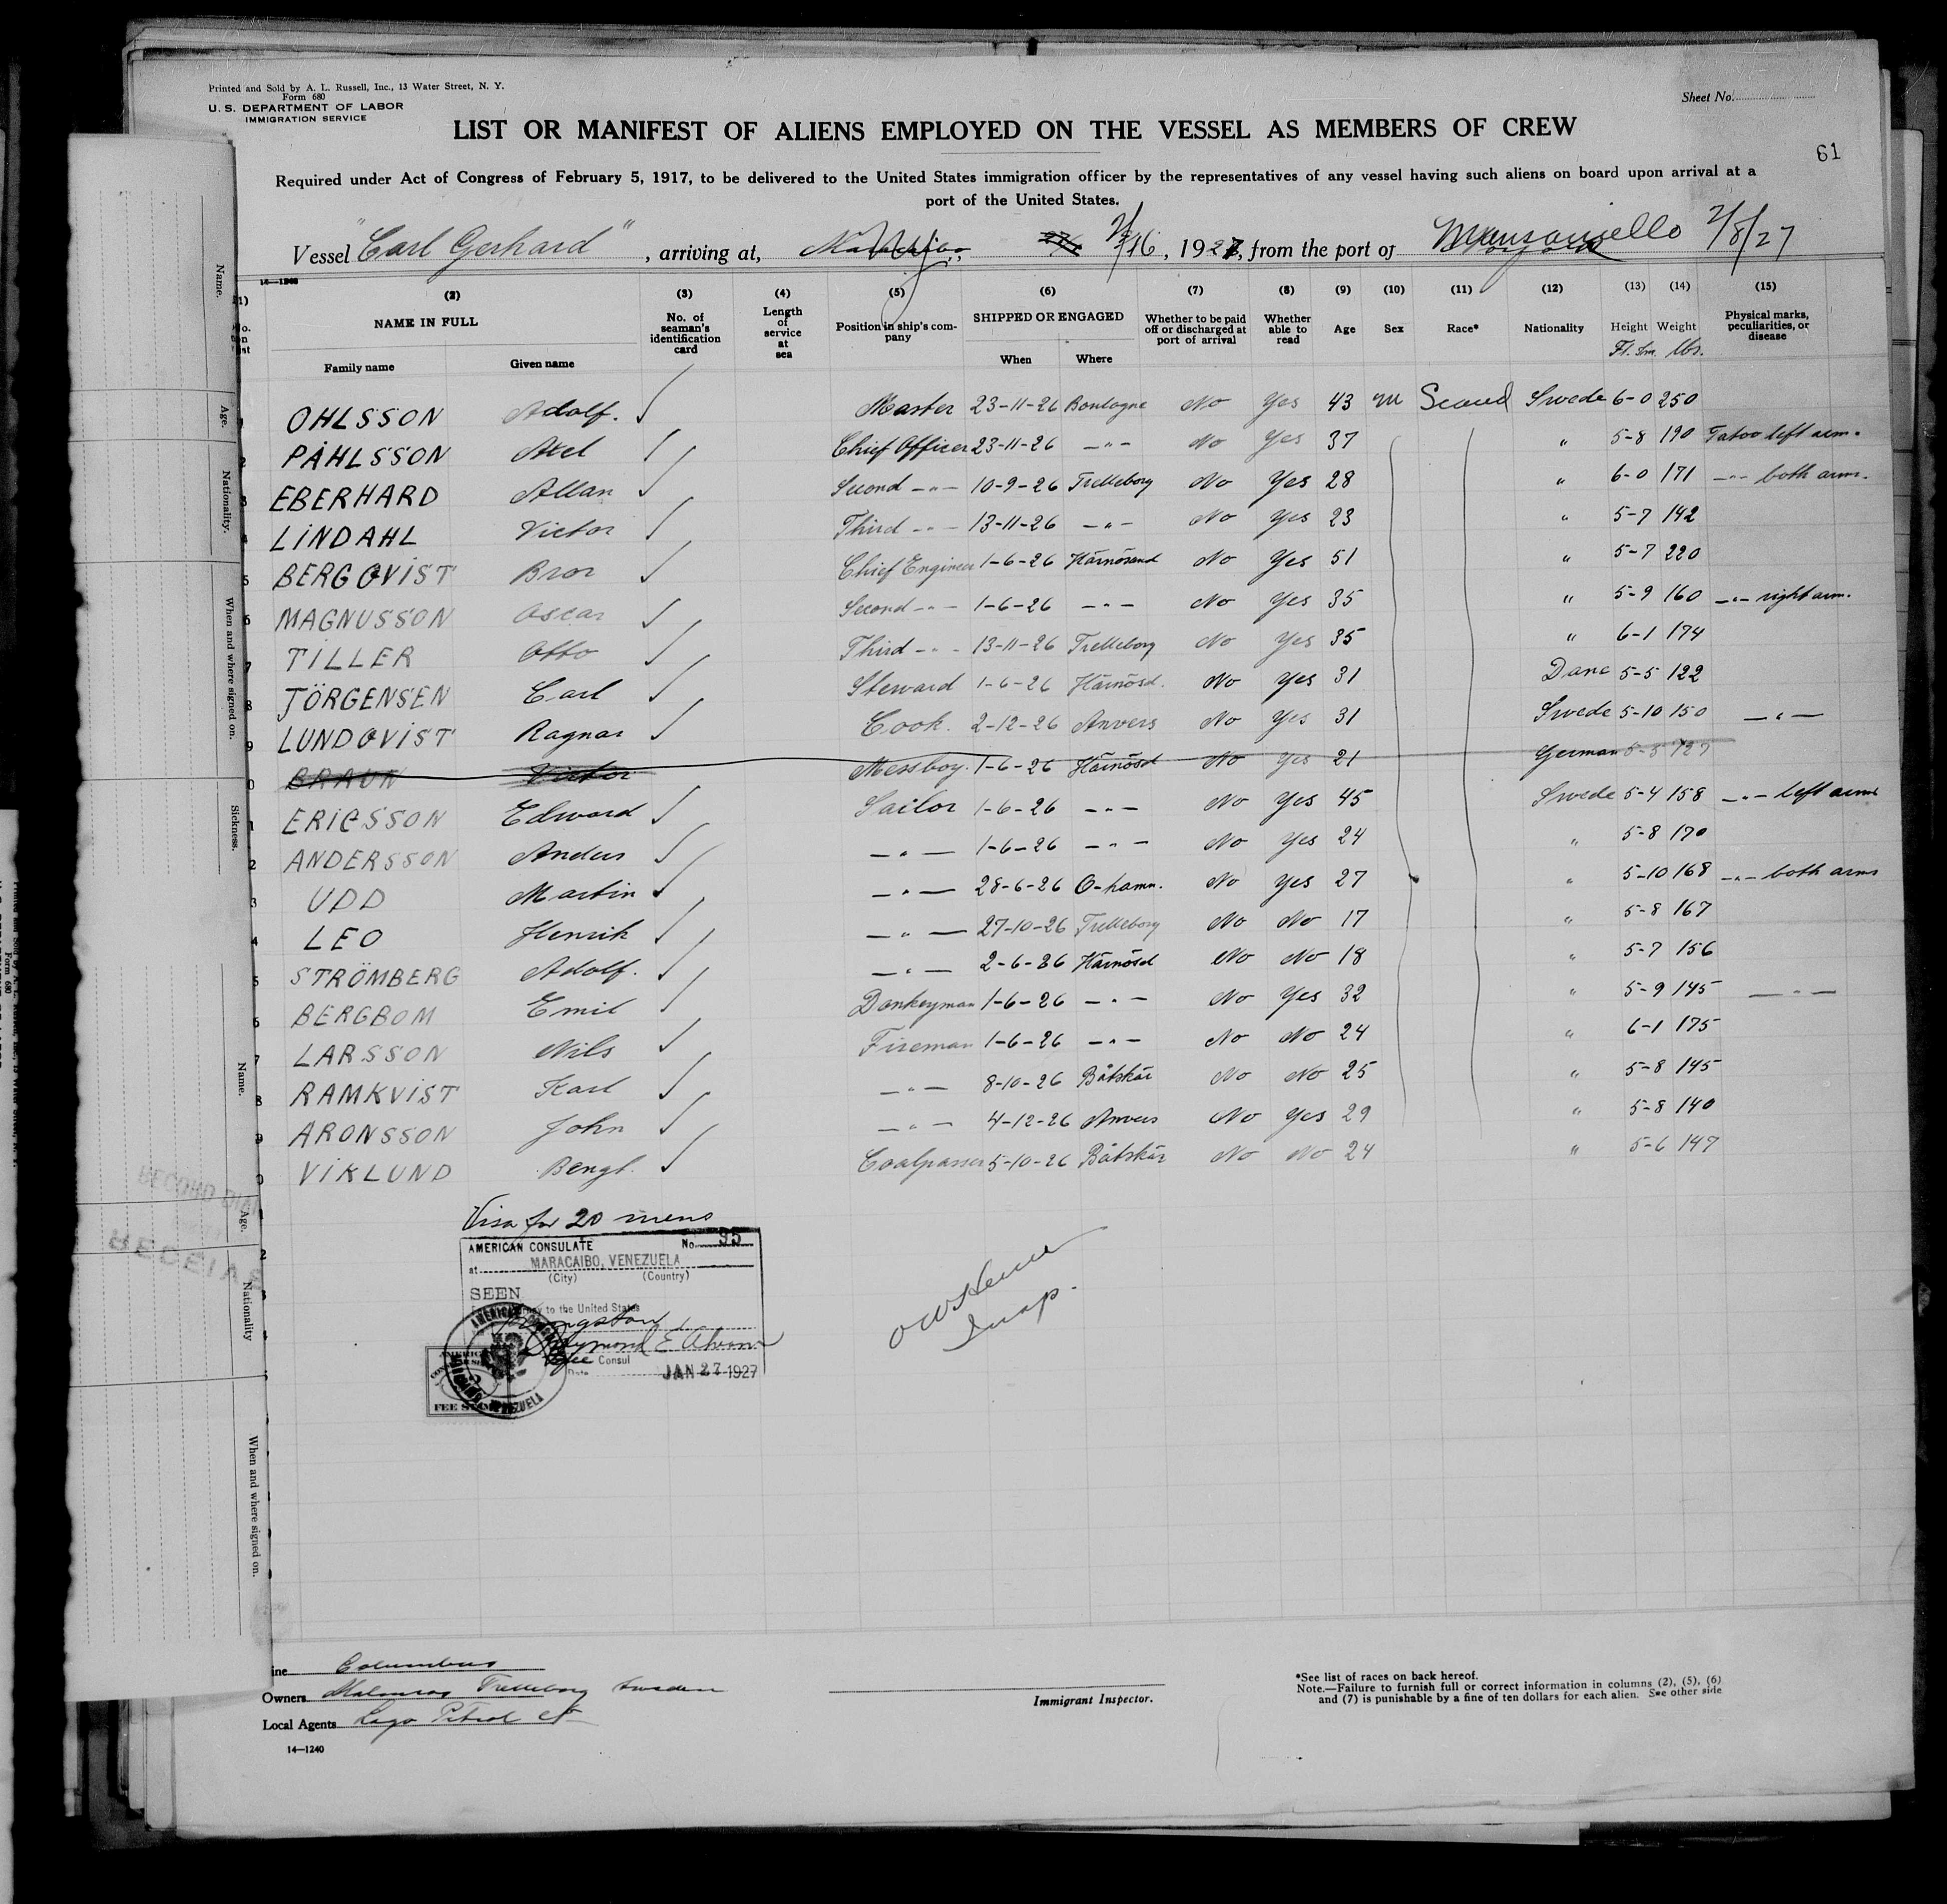 Printed and Sold by A. L. Russell, Inc., 13 Water Street, N. Y.
Form 680
U. S. DEPARTMENT OF LABOR
IMMIGRATION SERVICE
Sheet No.
LIST OR MANIFEST OF ALIENS EMPLOYED ON THE VESSEL AS MEMBERS OF CREW
61
Required under Act of Congress of February 5, 1917, to be delivered to the United States immigration officer by the representatives of any vessel having such aliens on board upon arrival at a
port of the United States.
Vessel "Carl Gerhard", arriving at, 2/16, 1927, from the port of 2/8/27
(2) (3) (4) (5) (6) (7) (8) (9) (10) (11) (12) (13) (14) (15)
NAME IN FULL No. of seaman's identification card Length of service at sea Position in ship's company SHIPPED OR ENGAGED Whether to be paid off or discharged at port of arrival Whether able to read Age Sex Race* Nationality Height Weight Physical marks, peculiarities, or disease
Family name Given name When Where Ft. In. lbs.
OHLSSON Adolf. Master 23-11-26 Boulogne No Yes 43 M Scand Swede 6-0 250
PÅHLSSON Axel Chief Officer 23-11-26 -"- No Yes 37 " 5-8 190 Tatoo left arm.
EBERHARD Allan Second -"- 10-9-26 Trelleborg No Yes 28 " 6-0 171 -"- both arms.
LINDAHL Victor Third -"- 13-11-26 -"- No Yes 23 " 5-7 142
BERGQVIST Bror Chief Engineer 1-6-26 Härnösand No Yes 51 " 5-7 220
MAGNUSSON Oscar Second -"- 1-6-26 -"- No Yes 35 " 5-9 160 -"- right arm.
TILLER Otto Third -"- 13-11-26 Trelleborg No Yes 35 " 6-1 174
JÖRGENSEN Carl Steward 1-6-26 Härnösd. No Yes 31 Dane 5-5 122
LUNDQVIST Ragnar Cook. 2-12-26 Anvers No Yes 31 Swede 5-10 150 -"-
BRAUN Victor Messboy. 1-6-26 Härnösd No Yes 21 German 5-5 127
ERICSSON Edward Sailor 1-6-26 -"- No Yes 45 Swede 5-4 158 -"- left arm
ANDERSSON Anders -"- 1-6-26 -"- No Yes 24 " 5-8 170
UDD Martin -"- 28-6-26 O-hamn. No Yes 27 " 5-10 168 -"- both arms
LEO Henrik -"- 27-10-26 Trelleborg No No 17 " 5-8 167
STRÖMBERG Adolf. -"- 2-6-26 Härnösd No No 18 " 5-7 156
BERGBOM Emil Donkeyman 1-6-26 -"- No Yes 32 " 5-9 145 -"-
LARSSON Nils Fireman 1-6-26 -"- No No 24 " 6-1 175
RAMKVIST Karl -"- 8-10-26 Båtskär No No 25 " 5-8 145
ARONSSON John -"- 4-12-26 Anvers No Yes 29 " 5-8 140
VIKLUND Bengt. Coalpasser 5-10-26 Båtskär No No 24 " 5-6 147
Visa for 20 mens
AMERICAN CONSULATE No. 95
at MARACAIBO, VENEZUELA
(City) (Country)
SEEN
to the United States
Consul
Date JAN 27 1927
FEE STAMP
Insp.
Columbus
Owners Trelleborg Sweden
Local Agents Lago Petrol
Immigrant Inspector.
*See list of races on back hereof.
Note.—Failure to furnish full or correct information in columns (2), (5), (6)
and (7) is punishable by a fine of ten dollars for each alien. See other side
14—1240
Name.
Age.
Nationality.
When and where signed on.
Sickness.
Name.
Age.
Nationality
When and where signed on.